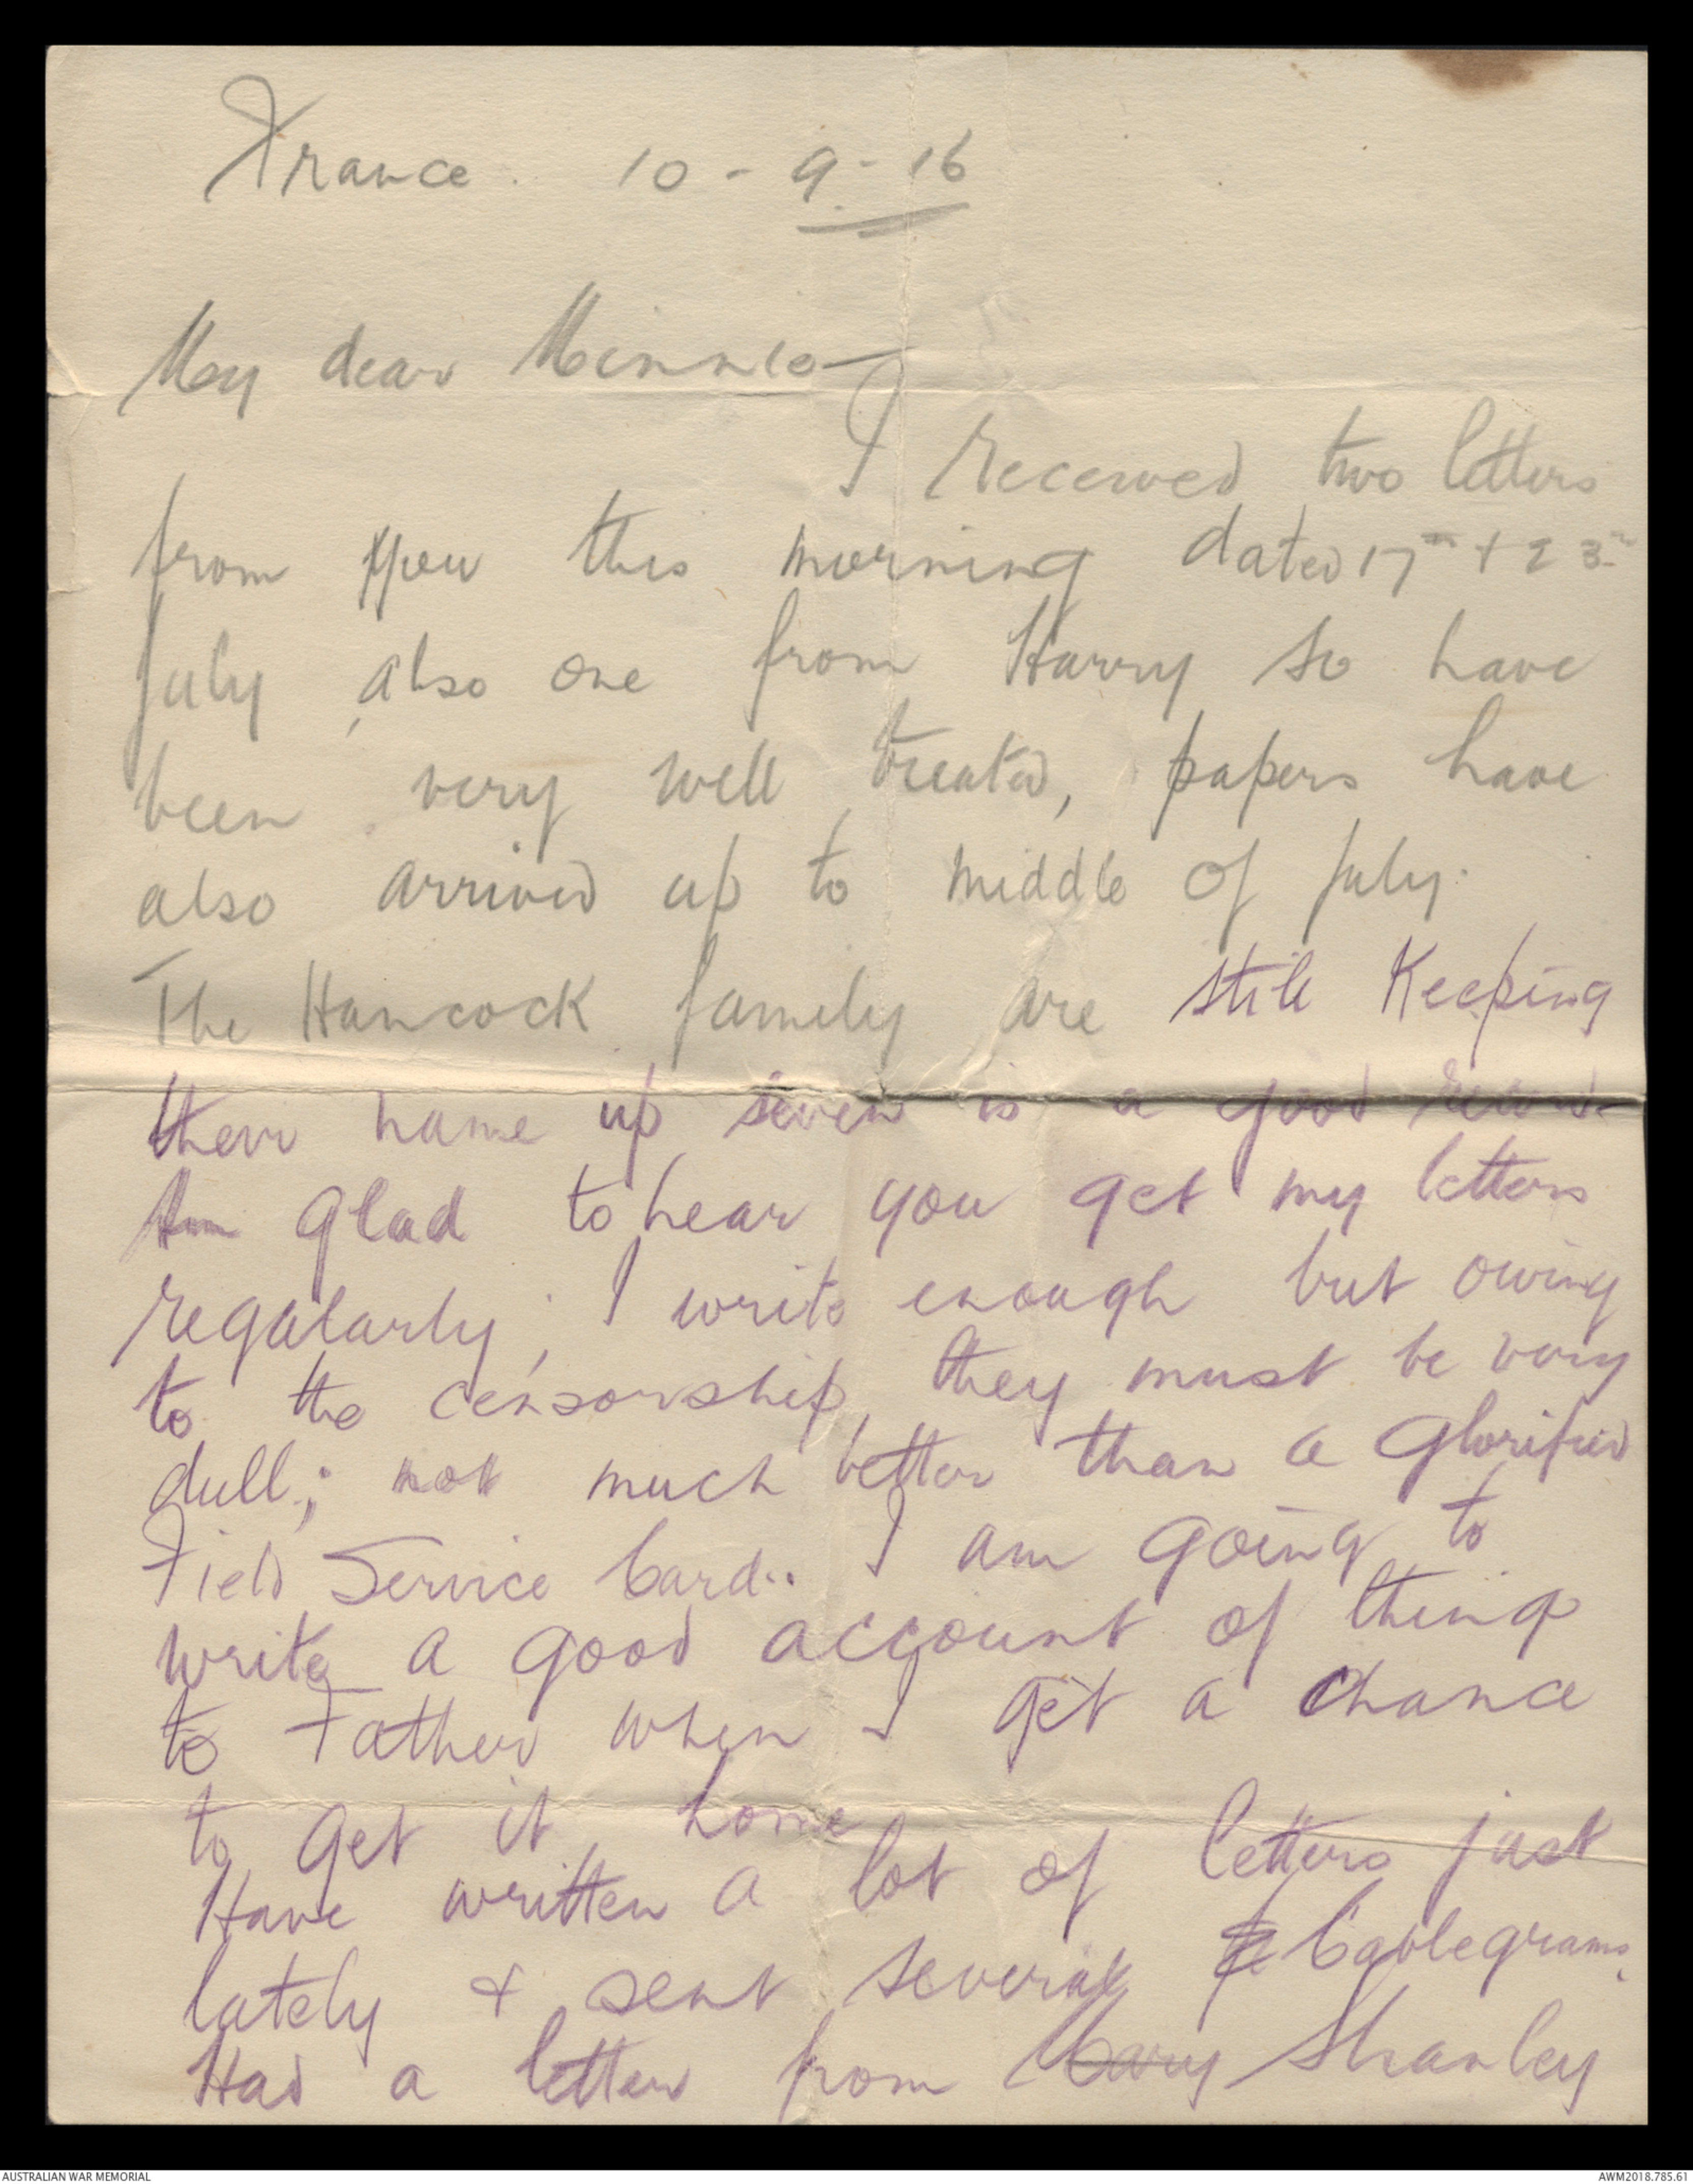 France. 10-9-16
My dear Minnie
I received two letters
from you this morning dated 17th + 23rd
July, also one from Harry so have
been very well treated, papers have
also arrived up to middle of July.
The Hancock family are still Keeping
their name up seven is a good record
Am glad to hear you get my letters
regularly; I write enough but owing
to the censorship they must be very
dull; not much better than a glorified
Field Service Card.. I am going to
write a good account of thing
to Father when I get a chance
to get it home
Have written a lot of letters just
lately + sent several Cablegrams.
Had a letter from Mary Shanley
AUSTRALIAN WAR MEMORIAL
AWM2018.785.61